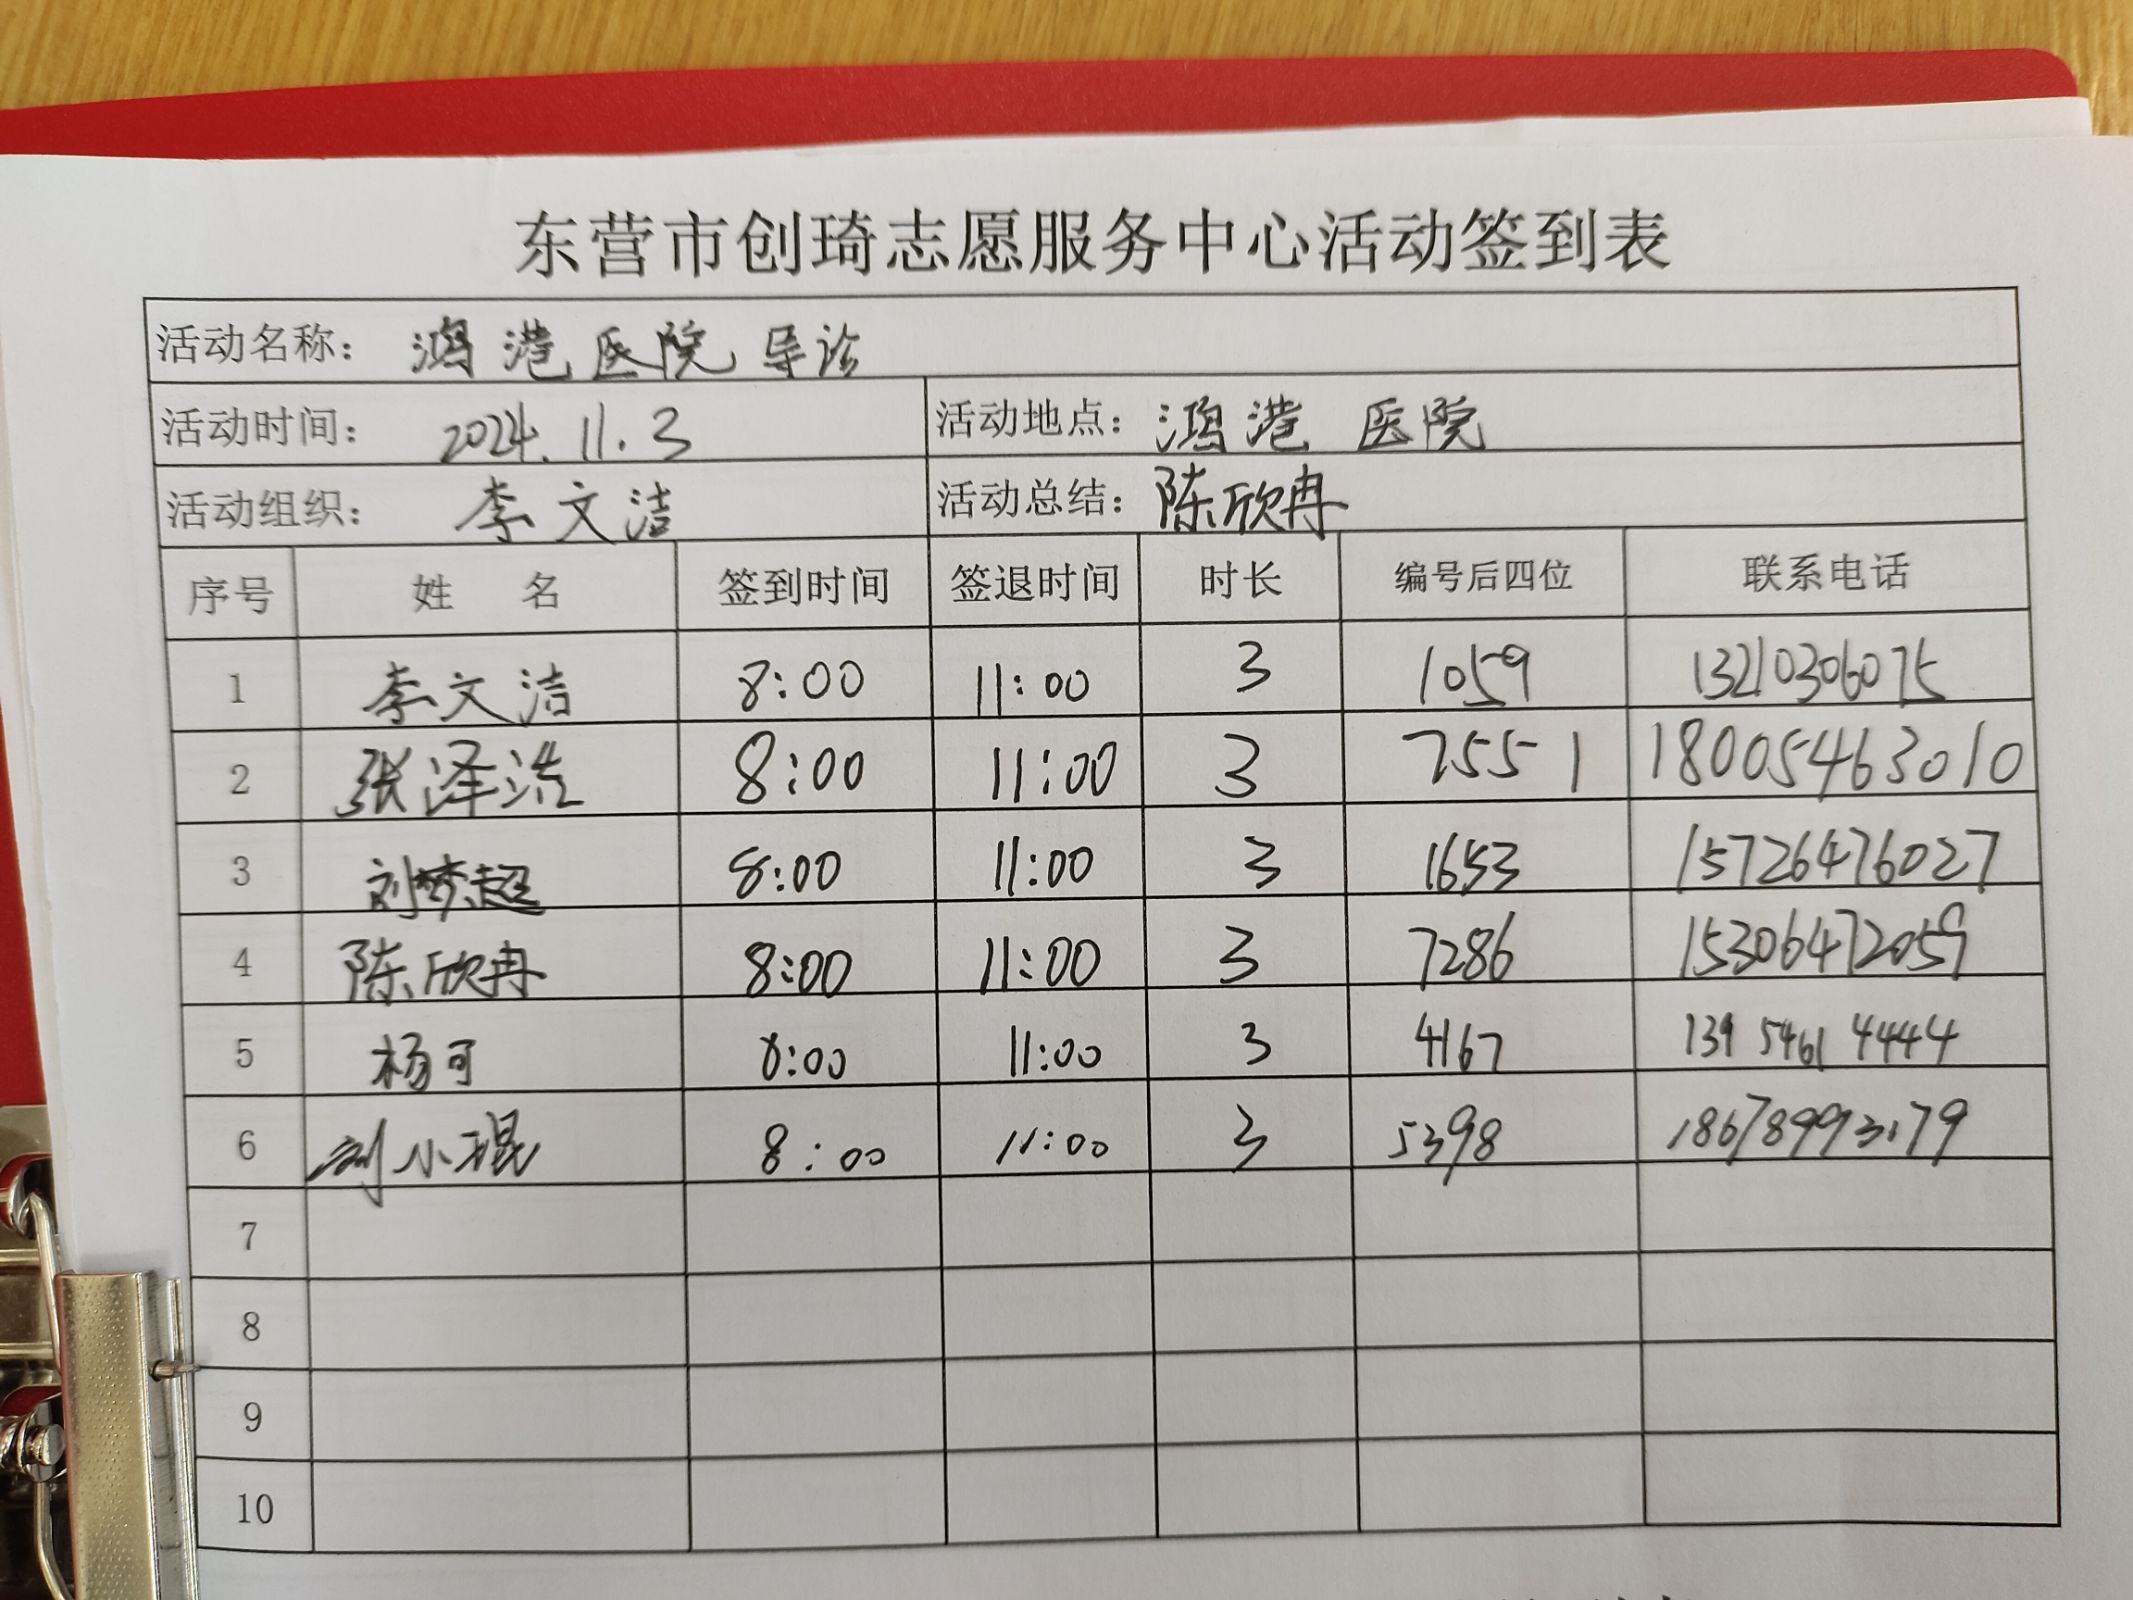 东营市创琦志愿服务中心活动签到表
活动名称： 鸿港医院导诊
活动时间： 2024.11.3 活动地点： 鸿港医院
活动组织： 李文洁 活动总结： 陈欣冉
序号 姓名 签到时间 签退时间 时长 编号后四位 联系电话
1 李文洁 8:00 11:00 3 1059 13210306075
2 张泽浩 8:00 11:00 3 7551 18005463010
3 刘梦超 8:00 11:00 3 1653 15726476027
4 陈欣冉 8:00 11:00 3 7286 15306472059
5 杨可 8:00 11:00 3 4167 139 5461 4444
6 刘小琨 8:00 11:00 3 5398 18678993179
7
8
9
10